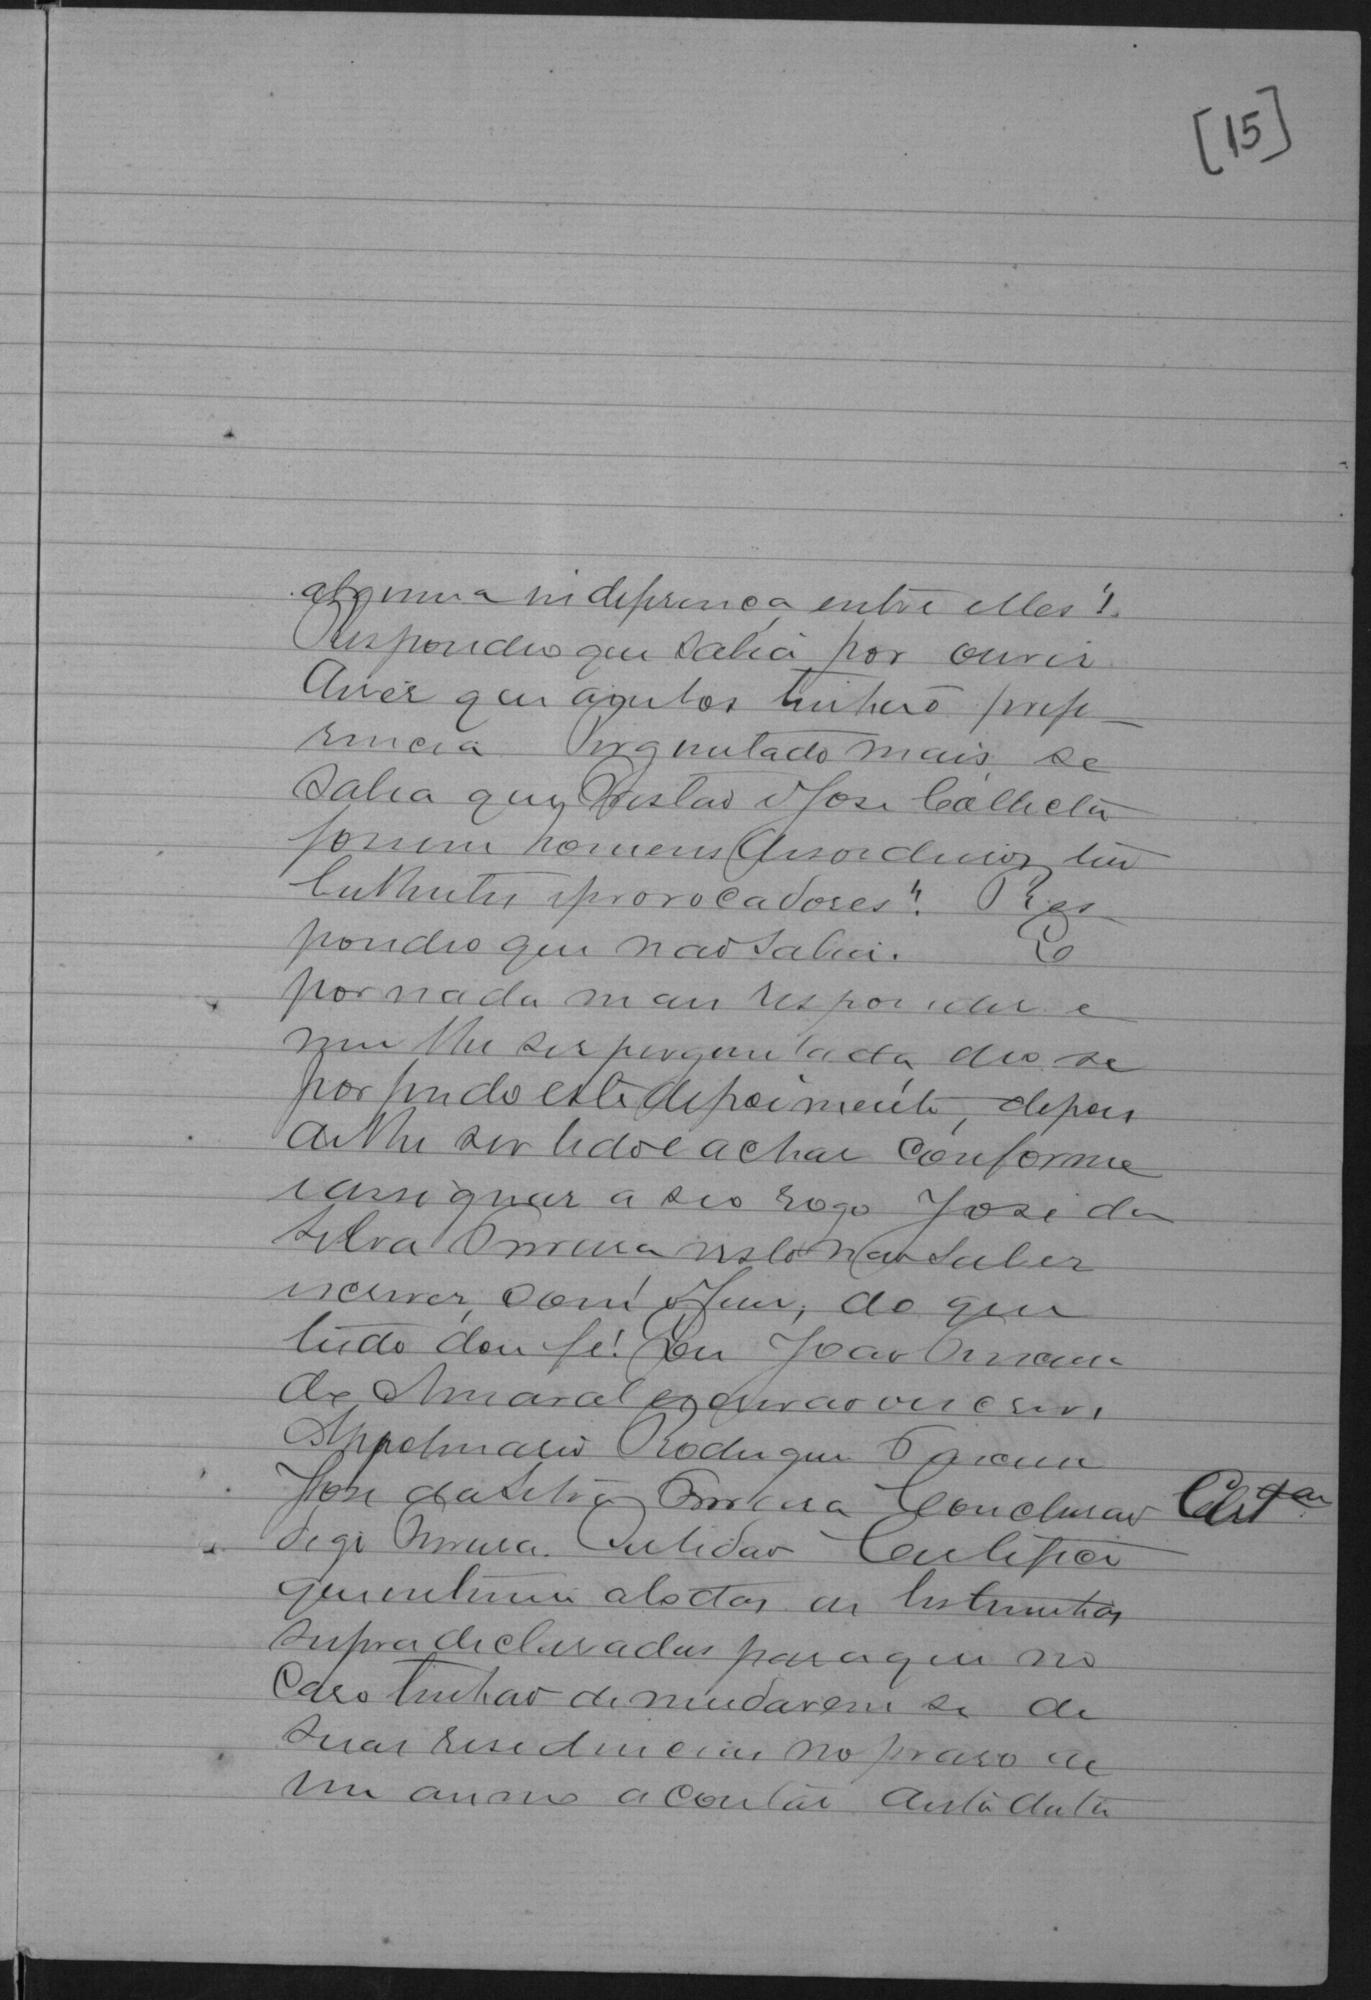 [15]
alguma indeferença entre elles?
Respondeo que sabia por ouvir
diser que aquelos tinhão prefe-
rencia Perguntado mais, se
sabia que, Tristão e José Calheta
forem homens desordeiros, tur
bulentos e provocadores? Res
pondeo que não sabia. E
por nada mais responder e
nem lhe ser perguntada deo-se
por findo este depoimento, depois
de lhe ser lido e achar conforme
e assignar a seo rogo José da
Silva visto não saber
escrever, com o Juiz, do que
tudo dou fé! Eu João
do Amaral escrivão que escrevi
Appolinario Rodrigues
José da Silva Conclusão
Certidão Certifico
que intimei a todas as testemunhas
supra declaradas para que no
caso tenhão de mudarem se de
suas residencias no praso de
um anno a contar desta data